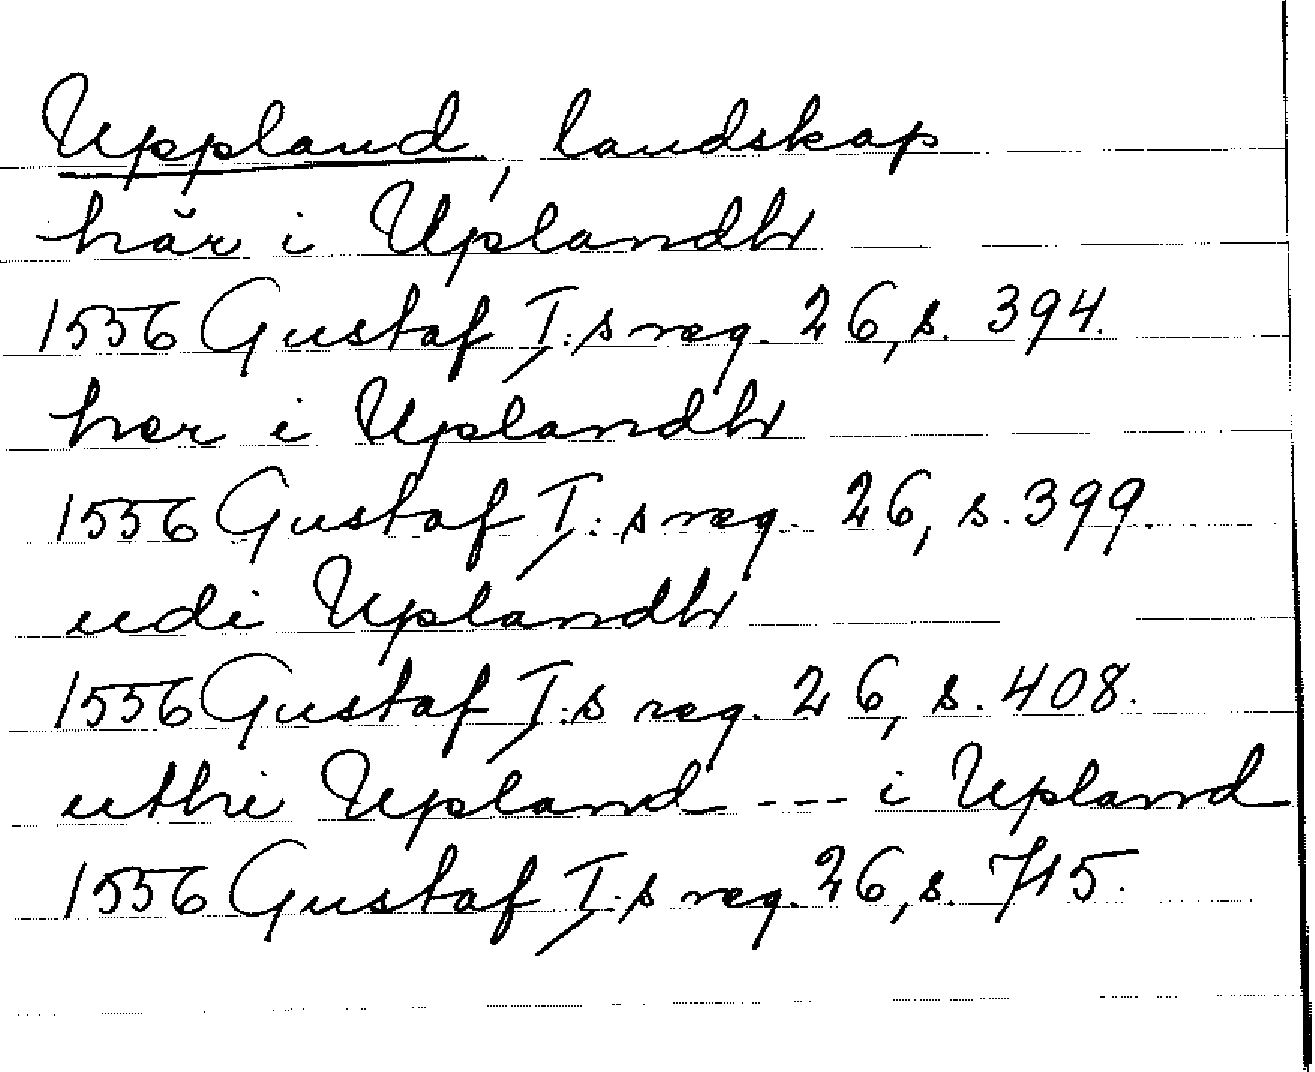 Uppland, landskap
här i Uplandh
1556 Gustaf I:s reg. 26, s. 394.
her i Uplandh
1556 Gustaf I:s reg. 26, s. 399.
udi Uplandh
1556 Gustaf I:s reg. 26, s. 408.
uthi Upland --- i Upland
1556 Gustaf I:s reg. 26, s. 715.